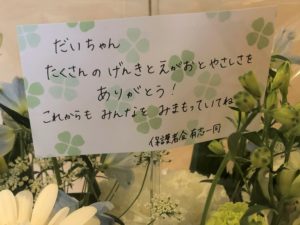 だいちゃん
たくさんの げんきと えがおと やさしさを
ありがとう！
これからも みんなを みまもっていてね
保護者会 有志一同